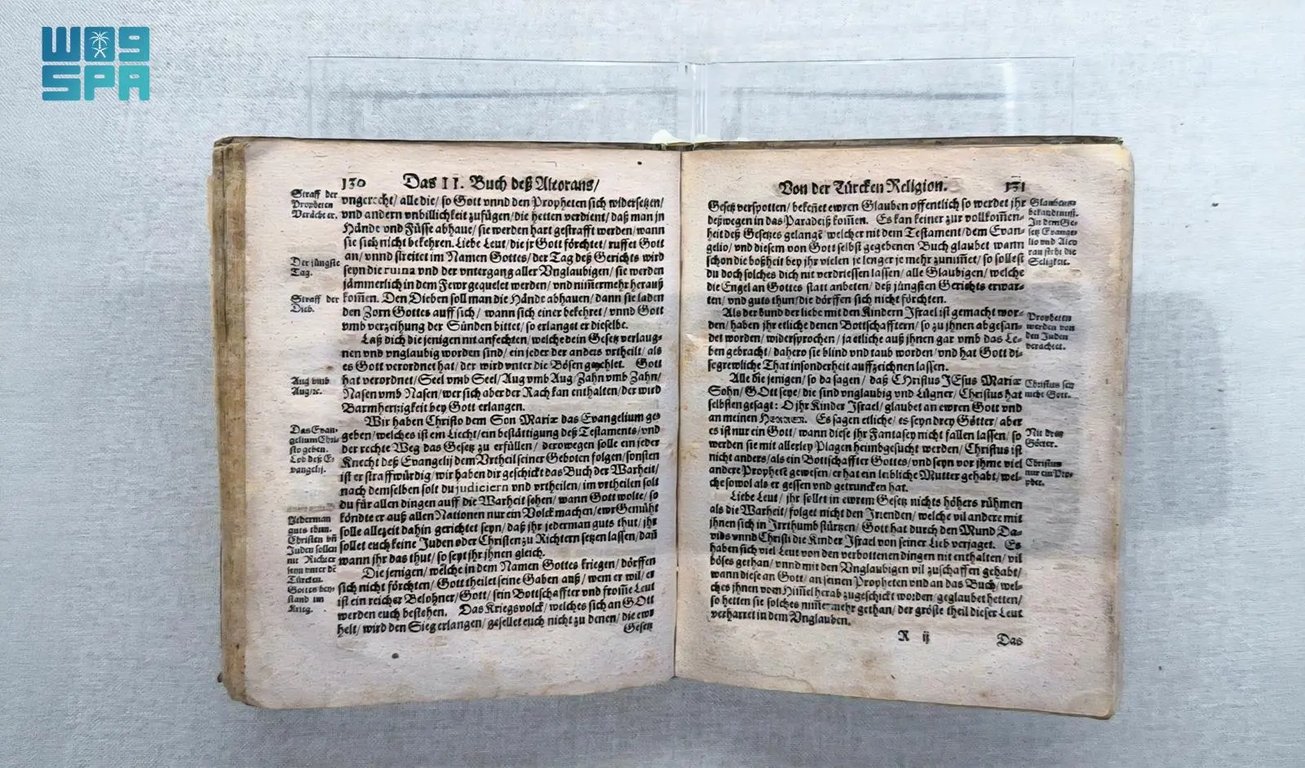 WAS
SPA
130 Das II. Buch deß Alcorans/
Straff der
Propheten
Verächter.
vngerecht/ alle die/ so Gott vnnd den Propheten sich widersetzen/
vnd andern vnbillichkeit zufügen/ die hetten verdient/ daß man jn
Hände vnd Füsse abhaue/ sie werden hart gestrafft werden/ wann
sie sich nicht bekehren. Liebe Leut/ die jr Gott förchtet/ ruffet Gott
an/ vnnd streitet im Namen Gottes/ der Tag deß Gerichts wird
Der jüngste
Tag.
seyn die ruina vnd der vntergang aller Vnglaubigen/ sie werden
jämmerlich in dem Fewr gequelet werden/ vnd nimmermehr herauß
Straff der
Dieb.
kom̃en. Den Dieben soll man die Hände abhauen/ dann sie laden
den Zorn Gottes auff sich/ wann sich einer bekehret/ vnnd Gott
vmb verzeihung der Sünden bittet/ so erlanget er dieselbe.
Laß dich die jenigen nit anfechten/ welche dein Gesetz verlaug-
nen vnd vnglaubig worden sind/ ein jeder der anders vrtheilt/ als
es Gott verordnet hat/ der wird vnter die Bösen gezehlet. Gott
Aug vmb
Aug/ꝛc.
hat verordnet/ Seel vmb Seel/ Aug vmb Aug/ Zahn vmb Zahn/
Nasen vmb Nasen/ wer sich aber der Rach kan enthalten/ der wird
Barmhertzigkeit bey Gott erlangen.
Wir haben Christo dem Son Mariæ das Evangelium ge-
Das Evan-
gelium Chri-
sto geben.
Lob deß E-
vangelij.
geben/ welches ist ein Liecht/ ein bestättigung deß Testaments/ vnd
der rechte Weg das Gesetz zu erfüllen/ derowegen solle ein jeder
Knecht deß Evangelij dem Vrtheil seiner Geboten folgen/ sonsten
ist er straffwürdig/ wir haben dir geschickt das Buch der Warheit/
nach demselben solt du judiciern vnd vrtheilen/ im vrtheilen solt
du für allen dingen auff die Warheit sehen/ wann Gott wolte/ so
Jederman
guts thun.
Christen vñ
Juden sollen
nit Richter
seyn vnter dē
Türcken.
Gottes bey-
stand im
Krieg.
köndte er auß allen Nationen nur ein Volck machen/ ewr Gemüht
solle allezeit dahin gerichtet seyn/ daß jhr jederman guts thut/ jhr
sollet euch keine Juden oder Christen zu Richtern setzen lassen/ dañ
wann jhr das thut/ so seyt jhr jhnen gleich.
Die jenigen/ welche in dem Namen Gottes kriegen/ dörffen
sich nicht förchten/ Gott theilet seine Gaben auß/ wem er wil/ er
ist ein reicher Belohner/ Gott/ sein Bottschaffter vnd from̃e Leut
werden euch bestehen. Das Kriegsvolck/ welches sich an GOtt
helt/ wird den Sieg erlangen/ gesellet euch nicht zu denen/ die ewr
Gesetz
Von der Türcken Religion. 131
Gesetz verspotten/ bekennet ewren Glauben offentlich so werdet jhr
deßwegen in das Paradeiß kom̃en. Es kan keiner zur vollkom̃en-
heit deß Gesetzes gelangē welcher mit dem Testament/ dem Evan-
gelio/ vnd diesem von Gott selbst gegebenen Buch glaubet wann
schon die boßheit bey jhr vielen je lenger je mehr zunim̃et/ so sollest
du doch solches dich nit verdriessen lassen/ alle Glaubigen/ welche
die Engel an Gottes statt anbeten/ deß jüngsten Gerichts erwar-
ten/ vnd guts thun/ die dörffen sich nicht förchten.
Glaubens-
bekandtnuß.
In dem Ge-
setz Evange-
lio vnd Alco
ran steht die
Seligkeit.
Als der bund der liebe mit den Kindern Israel ist gemacht wor-
den/ haben jhr etliche denen Bottschafftern/ so zu jhnen abgesan-
det worden/ widersprochen/ ja etliche auß jhnen gar vmb das Le-
ben gebracht/ dahero sie blind und taub worden/ vnd hat Gott di-
se grewliche That insonderheit auffzeichnen lassen.
Propheten
werden von
den Juden
verachtet.
Alle die jenigen/ so da sagen/ daß CHristus JEsus Mariæ
Sohn/ GOtt seye/ die sind vnglaubig vnd Lügner/ Christus hat
selbsten gesagt: O jhr Kinder Israel/ glaubet an ewren Gott vnd
Christus sey
nicht Gott.
an meinen HERREN. Es sagen etliche/ es seyn drey Götter/ aber
es ist nur ein Gott/ wann diese jhr Fantasey nicht fallen lassen/ so
werden sie mit allerley Plagen heimbgesucht werden/ Christus ist
nicht anders/ als ein Bottschaffter Gottes/ vnd seyn vor jhme viel
andere Prophetē gewesen/ er hat ein leibliche Mutter gehabt/ wel-
che sowol als er gessen vnd getruncken hat.
Nit drey
Götter.
Christus
nur ein Pro-
phet.
Liebe Leut/ jhr sollet in ewrem Gesetz nichts höhers rühmen
als die Warheit/ folget nicht den Irrenden/ welche vil andere mit
jhnen sich in Irrthumb stürtzen/ Gott hat durch den Mund Da-
vids vnnd Christi die Kinder Israel von seiner Lieb verjaget. Es
haben sich viel Leut von den verbottenen dingen nit enthalten/ vil
böses gethan/ vnnd mit den Vnglaubigen vil zuschaffen gehabt/
wann diese an Gott/ an seinen Propheten vnd an das Buch/ wel-
ches jhnen vom Him̃el herab zugeschickt worden geglaubet hetten/
so hetten sie solches nim̃ermehr gethan/ der gröste theil dieser Leut
verharret in dem Vnglauben.
R ij Das